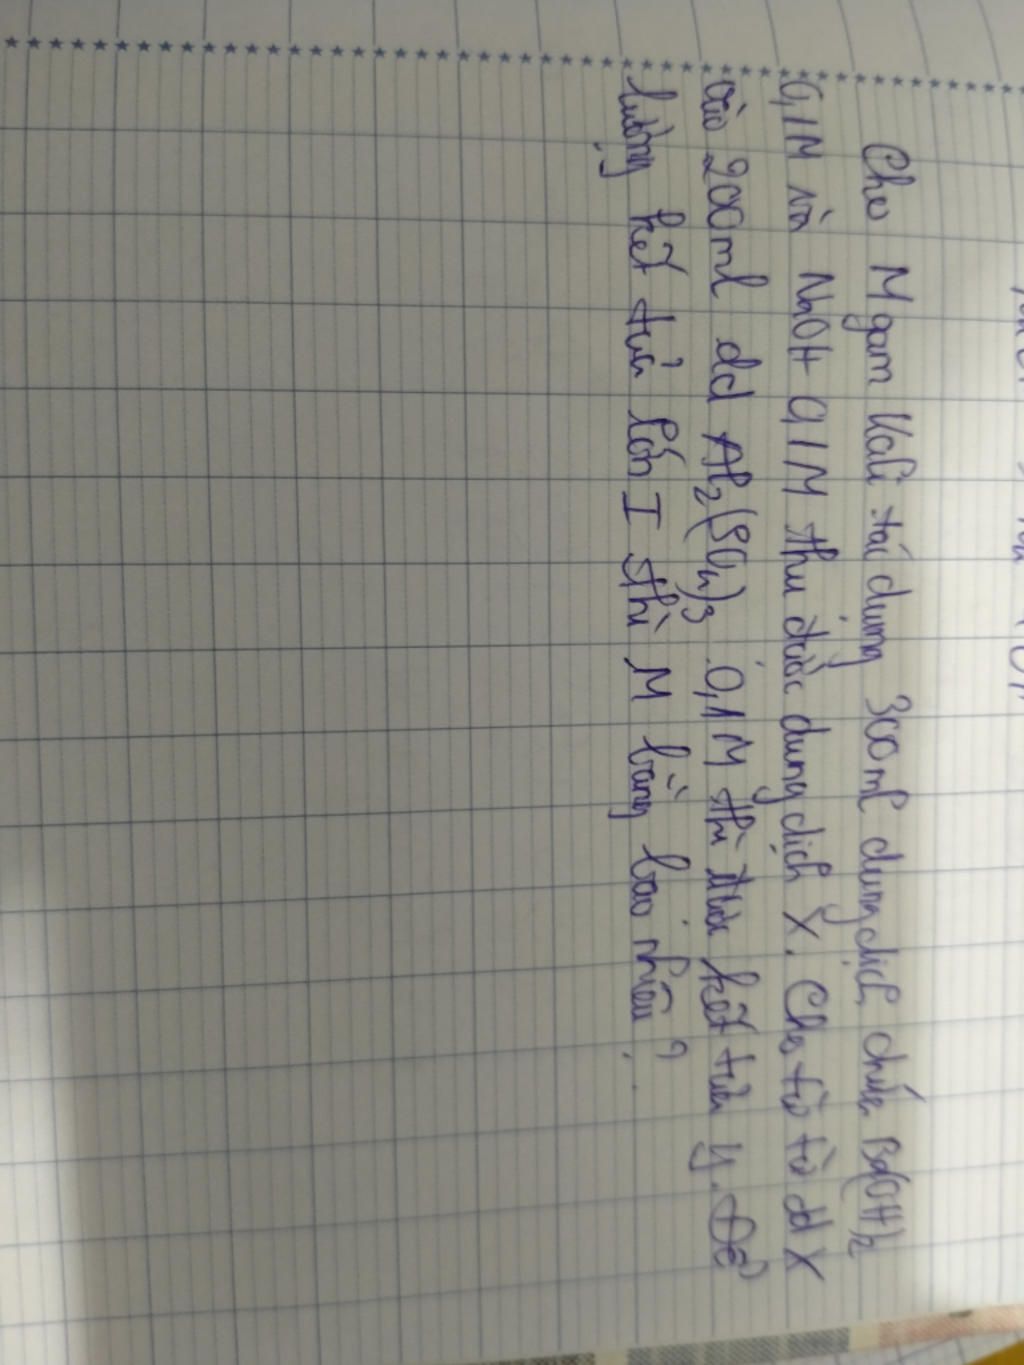 Cho M gam Kali tác dụng 300ml dung dịch chứa Ba(OH)2
0,1M và NaOH 0,1M thu được dung dịch X. Cho từ từ dd X
vào 200ml dd Al2(SO4)3 0,1M thì thu kết tủa y. Để
lượng kết tủa lớn I thì M bằng bao nhiêu?